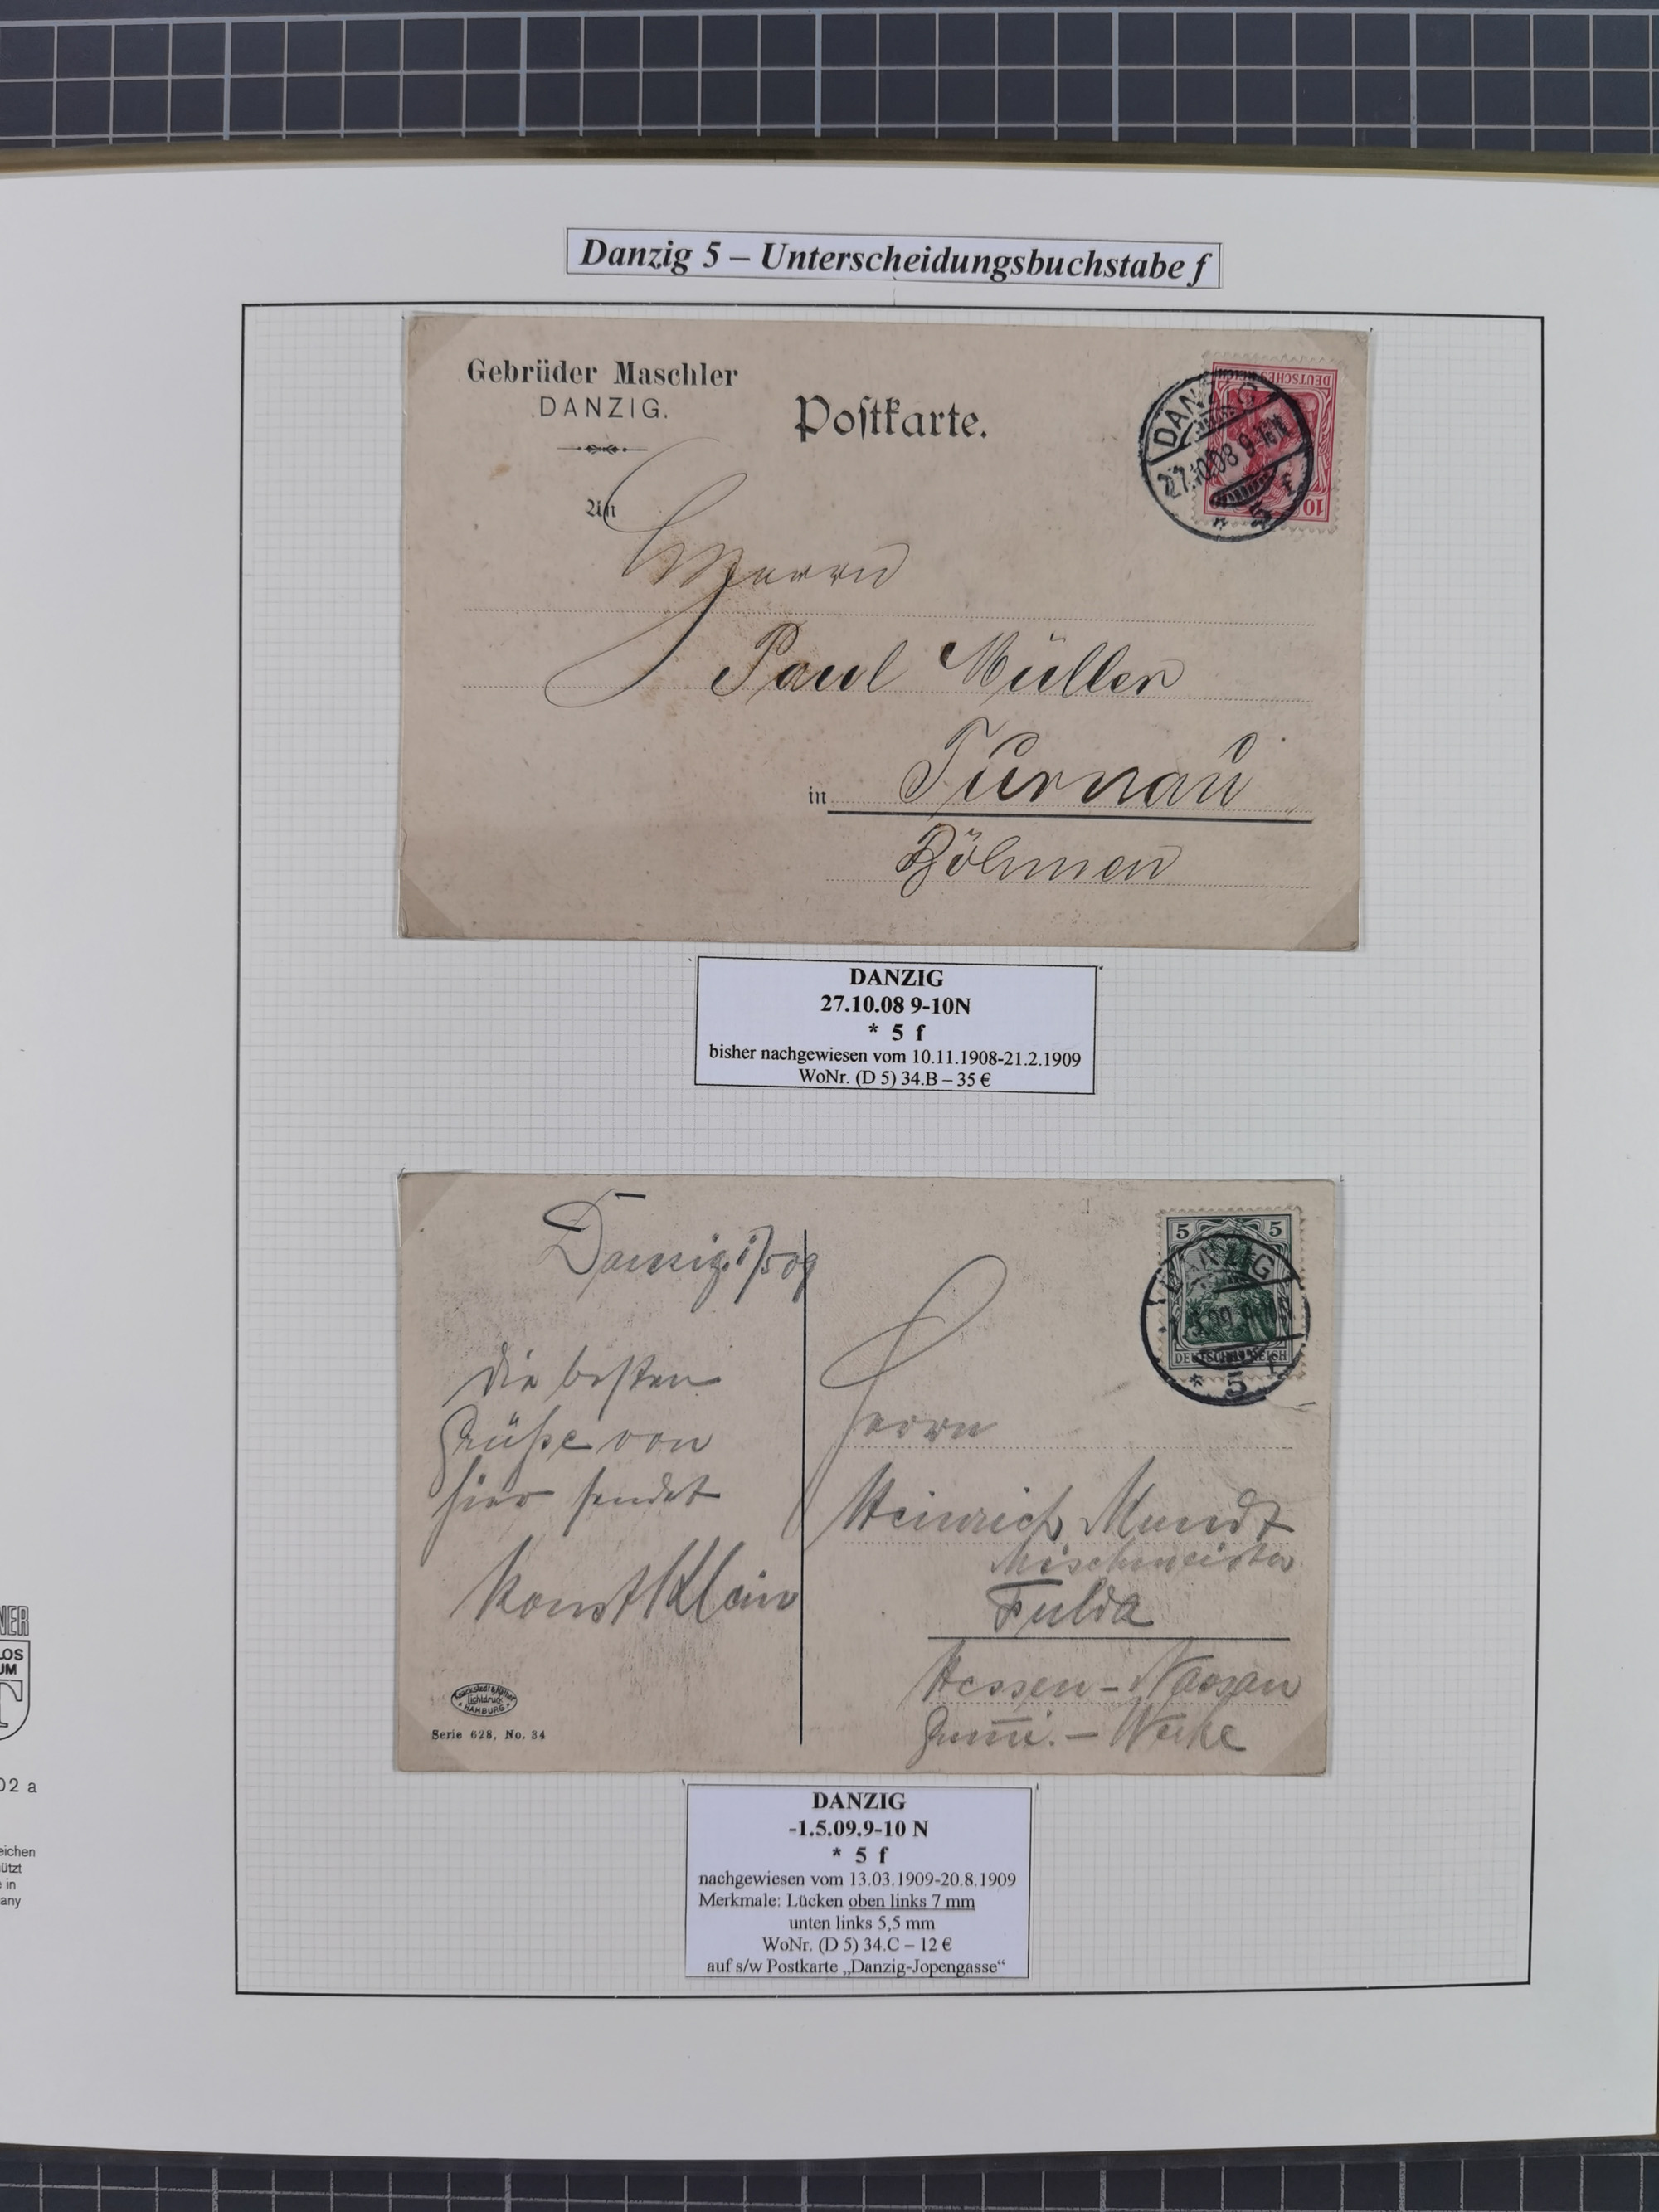 Danzig 5 – Unterscheidungsbuchstabe f
Gebrüder Maschler
DANZIG.
Postkarte.
DEUTSCHES REICH
10
DANZIG
27.10.08 9-10N
* 5 f
An
Herrn
Paul Müller
in Turnau
Böhmen
DANZIG
27.10.08 9-10N
* 5 f
bisher nachgewiesen vom 10.11.1908-21.2.1909
WoNr. (D 5) 34.B – 35 €
Danzig. 1/5 09
die besten
Grüße von
hier sendet
Konst Klein
5 5
DANZIG
DEUTSCHES REICH
* 5 f
Herrn
Heinrich Mundt
Mischmeister
Fulda
Hessen-Nassau
Gummi.-Werke
Knackstedt & Näther
Lichtdruck
HAMBURG
Serie 628, No. 34
DANZIG
-1.5.09.9-10 N
* 5 f
nachgewiesen vom 13.03.1909-20.8.1909
Merkmale: Lücken oben links 7 mm
unten links 5,5 mm
WoNr. (D 5) 34.C – 12 €
auf s/w Postkarte „Danzig-Jopengasse“
NER
LOS
UM
T
02 a
eichen
ützt
e in
any